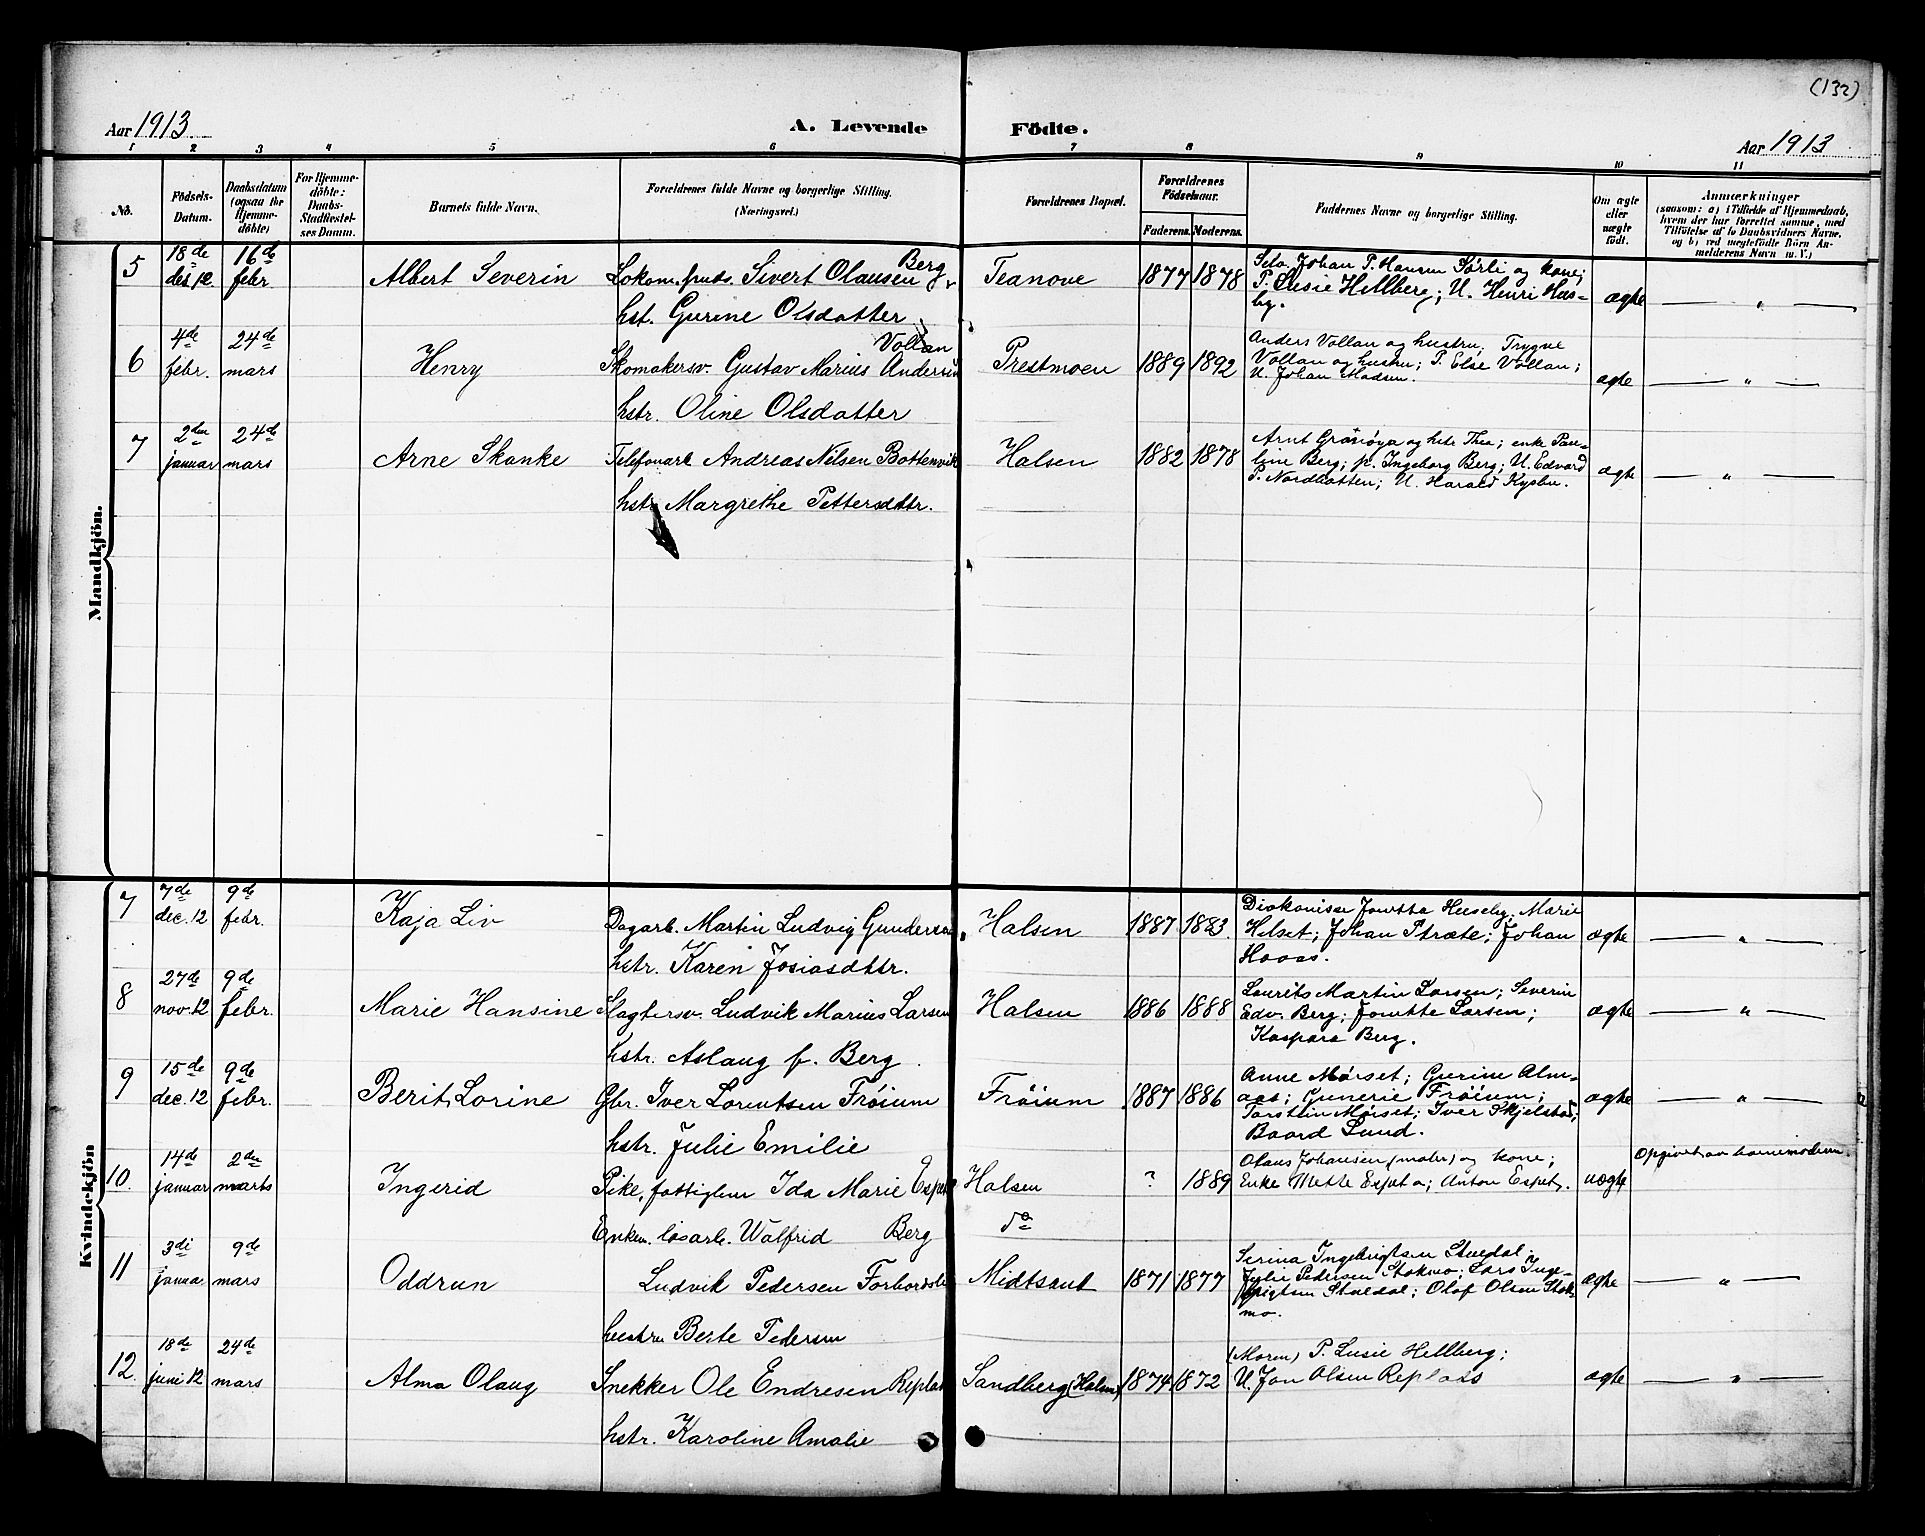 (132)
Aar 1913
A. Levende Födte.
Aar 1913
1 2 3 4 5 6 7 8 9 10 11
No.
Födsels-Datum.
Daabsdatum (ogsaa the Hjemme-döbte)
For Hjemme-döbte: Daabs-Stadfæstel-ses Datum.
Barnets fulde Navn.
Forældrenes fulde Navne og borgerlige Stilling.
(Næringsvei.)
Forældrenes Bopæl.
Forældrenes Födselsaar.
Faderens. Moderens.
Faddernes Navne og borgerlige Stilling.
Om ægte eller uægte födt.
Anmærkninger
(saasom: a) i Tilfælde af Hjemmedaab,
hvem der har forrettet samme, med
Tilföielse af to Daabsvidners Navne,
og b) ved uægtefödte Börn An-
melderens Navn m. V.)
Mandkjön.
5 18de des 12 16de febr Albert Severin Lokom.puds. Sivert Olausen Berg
hst. Gurine Olsdatter
Teanove 1877 1878
Selv, Johan P. Hansen Sørli og kone;
P. Lusie Hellberg; U. Henri Hus-
by.
ægte — " —
6 4de febr. 24de mars Henry Skomakersv. Gustav Marius Andersen Vollan
hstr. Oline Olsdatter
Prestmoen 1889 1892
Anders Vollan og hustru; Trygve
Vollan og hustru; P. Else Vollan;
U. Johan Madsen.
ægte — " —
7 2den januar 24de mars Arne Skanke Telefonarb. Andreas Nilsen Bottenvik
hstr. Margrethe Pettersdttr.
Halsen 1882 1878
Arnt Grønøya og hst. Thea; enke Pau-
line Berg; p. Ingeborg Berg; U. Edvard
P. Nordhotten; U. Harald
ægte — " —
Kvindekjön
7 7de dec. 12 9de febr. Kaja Liv Dagarb. Martin Ludvig Gundersen
hstr. Karen Josiasdttr.
Halsen 1887 1883
Diakonisse Jonetta Huseby; Marie
Helset; Johan Præte; Johan
Hoaas.
ægte — " —
8 27de nov. 12 9de febr. Marie Hansine Slagtersv. Ludvik Marius Larsen
hstr. Aslaug f. Berg
Halsen 1886 1888
Laurits Martin Larsen; Severin
Edv. Berg; Jonette Larsen;
Kaspara Berg.
ægte — " —
9 15de dec. 12 9de febr. Berit Lorine Gbr. Iver Lorentsen Frøium
hstr. Julie Emilie
Frøium 1887 1886
Anne Mørset; Gurine Alm-
aas; Gunerie Frøium;
Torstein Mørset; Iver Skjelstad;
Baard Lund.
ægte — " —
10. 14de januar 2den marts Ingerid Pike, fattiglem Ida Marie Espet
Enkem. løsarb. Walfrid Berg
Halsen ? 1889
do
Olaus Johansen (maler) og kone;
Enke Mette Espet a; Anton Espet.
uægte Opgivet av barnemoderen.
11 3di januar 9de mars Oddrun Ludvik Pedersen Forbords
hustru Berte Pedersen
Midtsand 1871 1877
Serina Ingebrigtsen Stuedal;
Julie Pedersen Stokmo; Lars Inge-
brigtsen Stuedal; Olaf Olsen Stok-
mo.
ægte — " —
12. 18de juni 12 24de mars Alma Olaug Snekker Ole Endresen Replas
hstr. Karoline Amalie
Sandberg (Halsen) 1874 1872
(Moren) P. Lusie Hellberg;
U. Jon Olsen Replass
ægte — " —